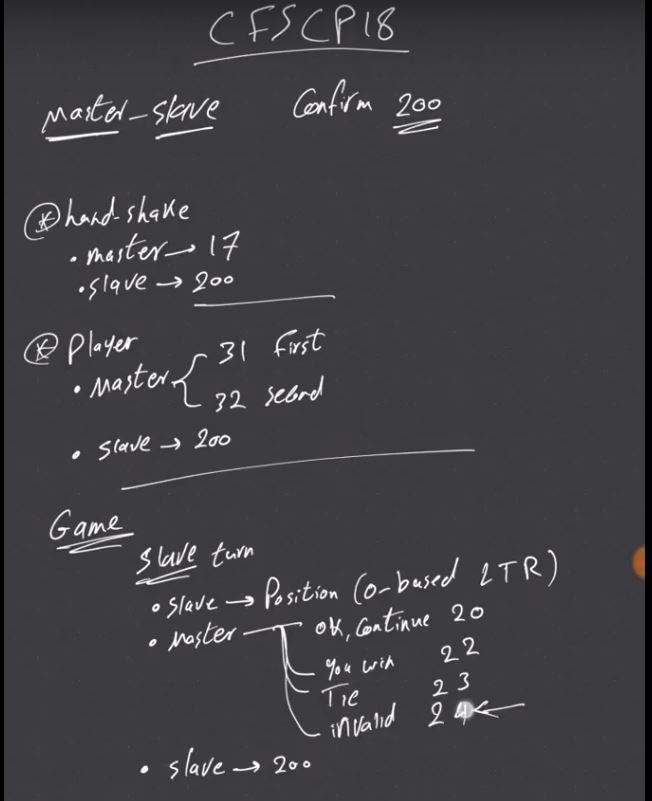 CFSCP18
Master-slave Confirm 200
* hand-shake
• master → 17
• slave → 200
* Player
• Master { 31 First
32 second
• slave → 200
Game
slave turn
• slave → Position (0-based LTR)
• Master OK, Continue 20
You win 22
Tie 23
invalid 24 ←
• slave → 200